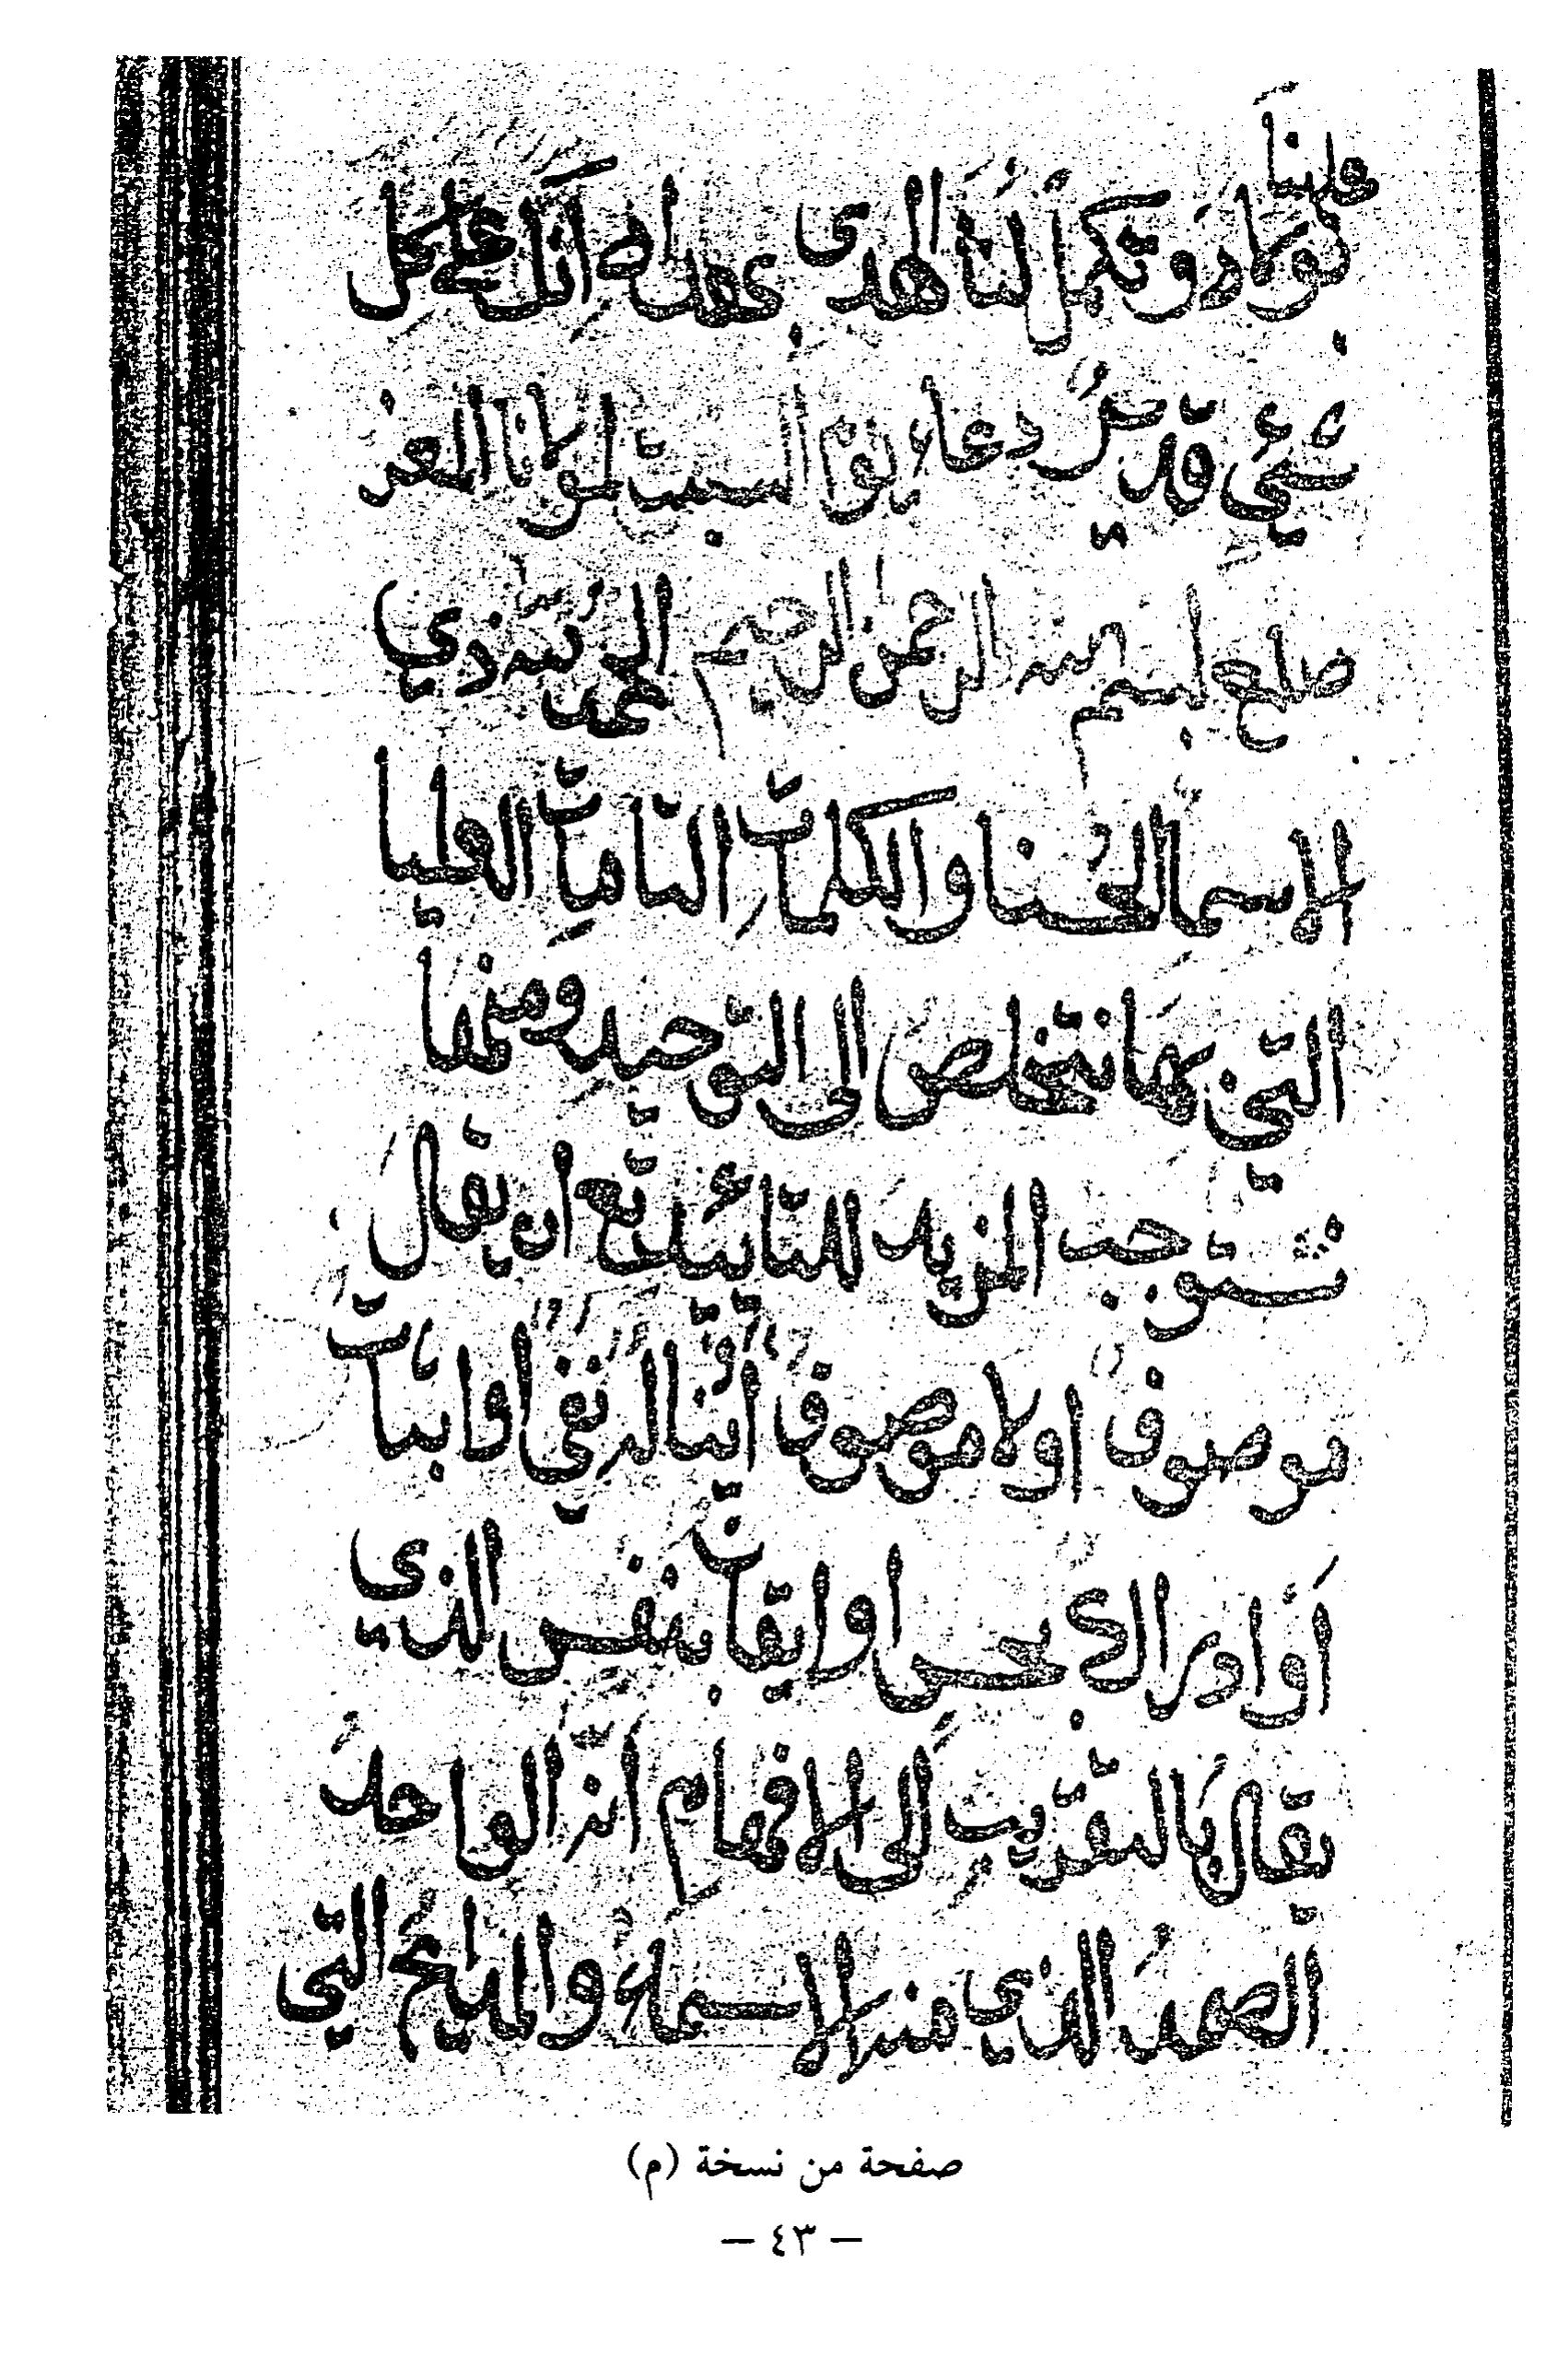 علينا
بنوارد وتكمل لنا الهدى بمصداه انك على كل
شيئ قدير دعاء يوم السبت لمولانا المعز
صلع بسم الله الرحمن الرحيم الحمد لله ذي
الاسما الحسنا والكلمات التامات العليا
التي بها نتخلص الى التوحيد ومنها
نستوجب المزيد للتائيد تع ان يقال
موصوف او لا موصوف اينا له نفي او اثبات
او ادراك بحس او ايقان بنفس الذي
يقال بالتقريب الى الافهام انه الواحد
الصمد الذي منه الاسماء والمدايح التي
صفحة من نسخة (م)
— ٤٣ —